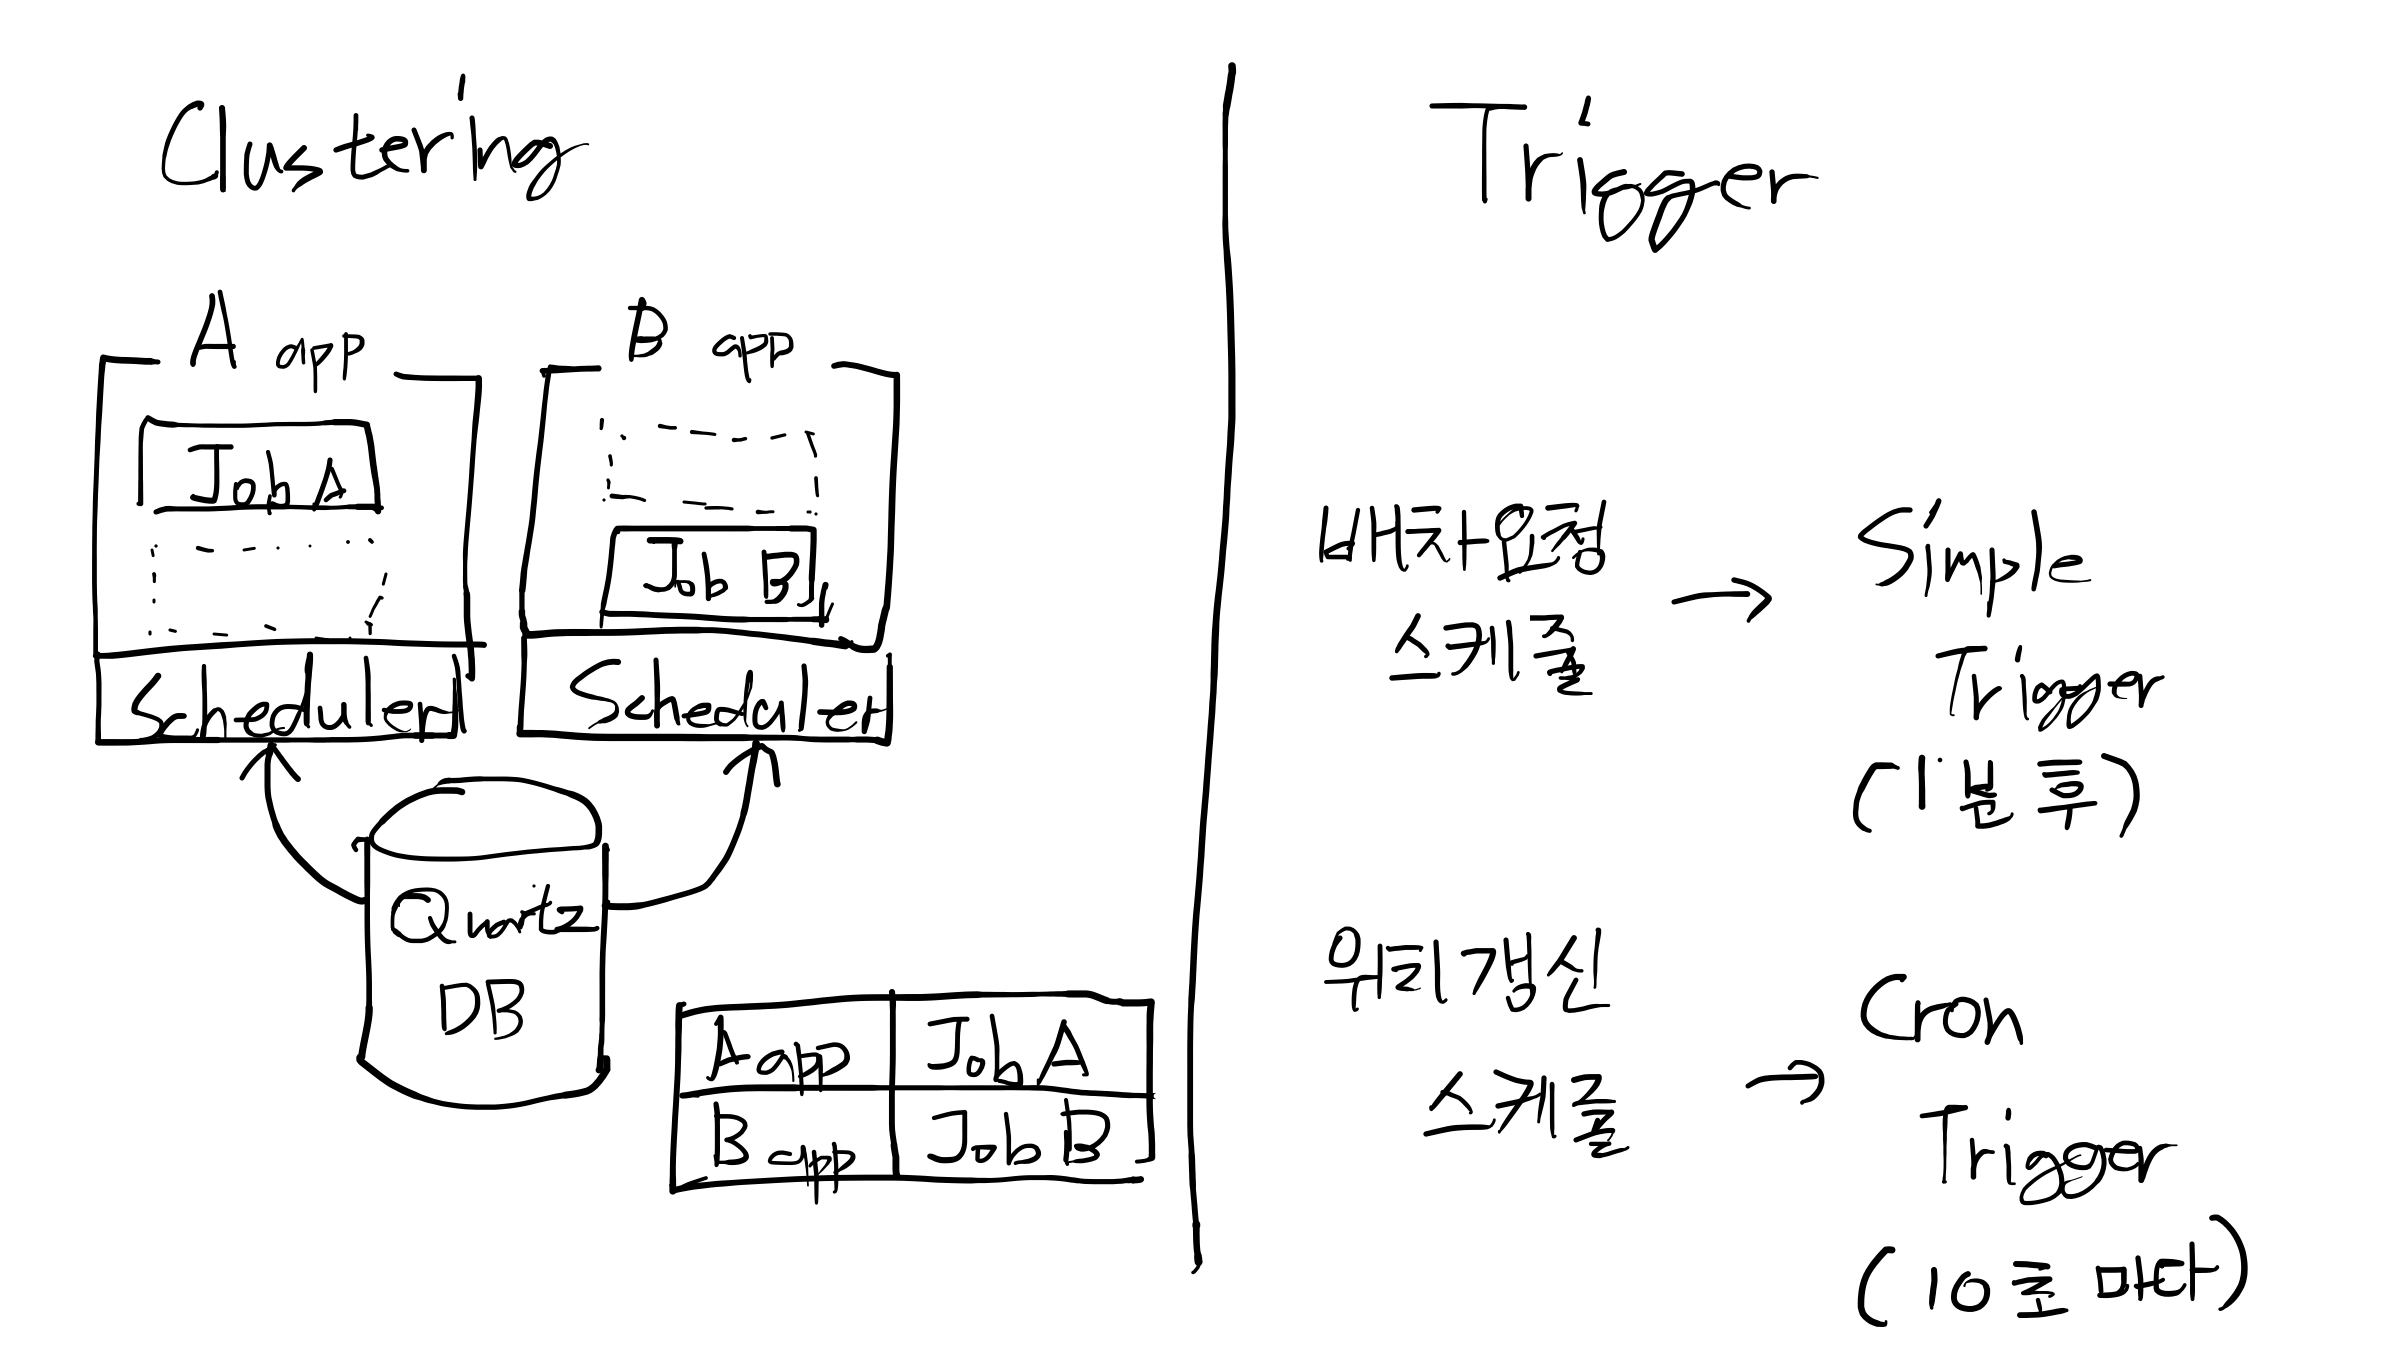 Clustering
A app
B app
Job A
Job B
Scheduler
Scheduler
Quartz
DB
A app Job A
B app Job B
Trigger
배차요청
스케줄
→ Simple
Trigger
(1분 후)
위치갱신
스케줄
→ Cron
Trigger
(10초 마다)